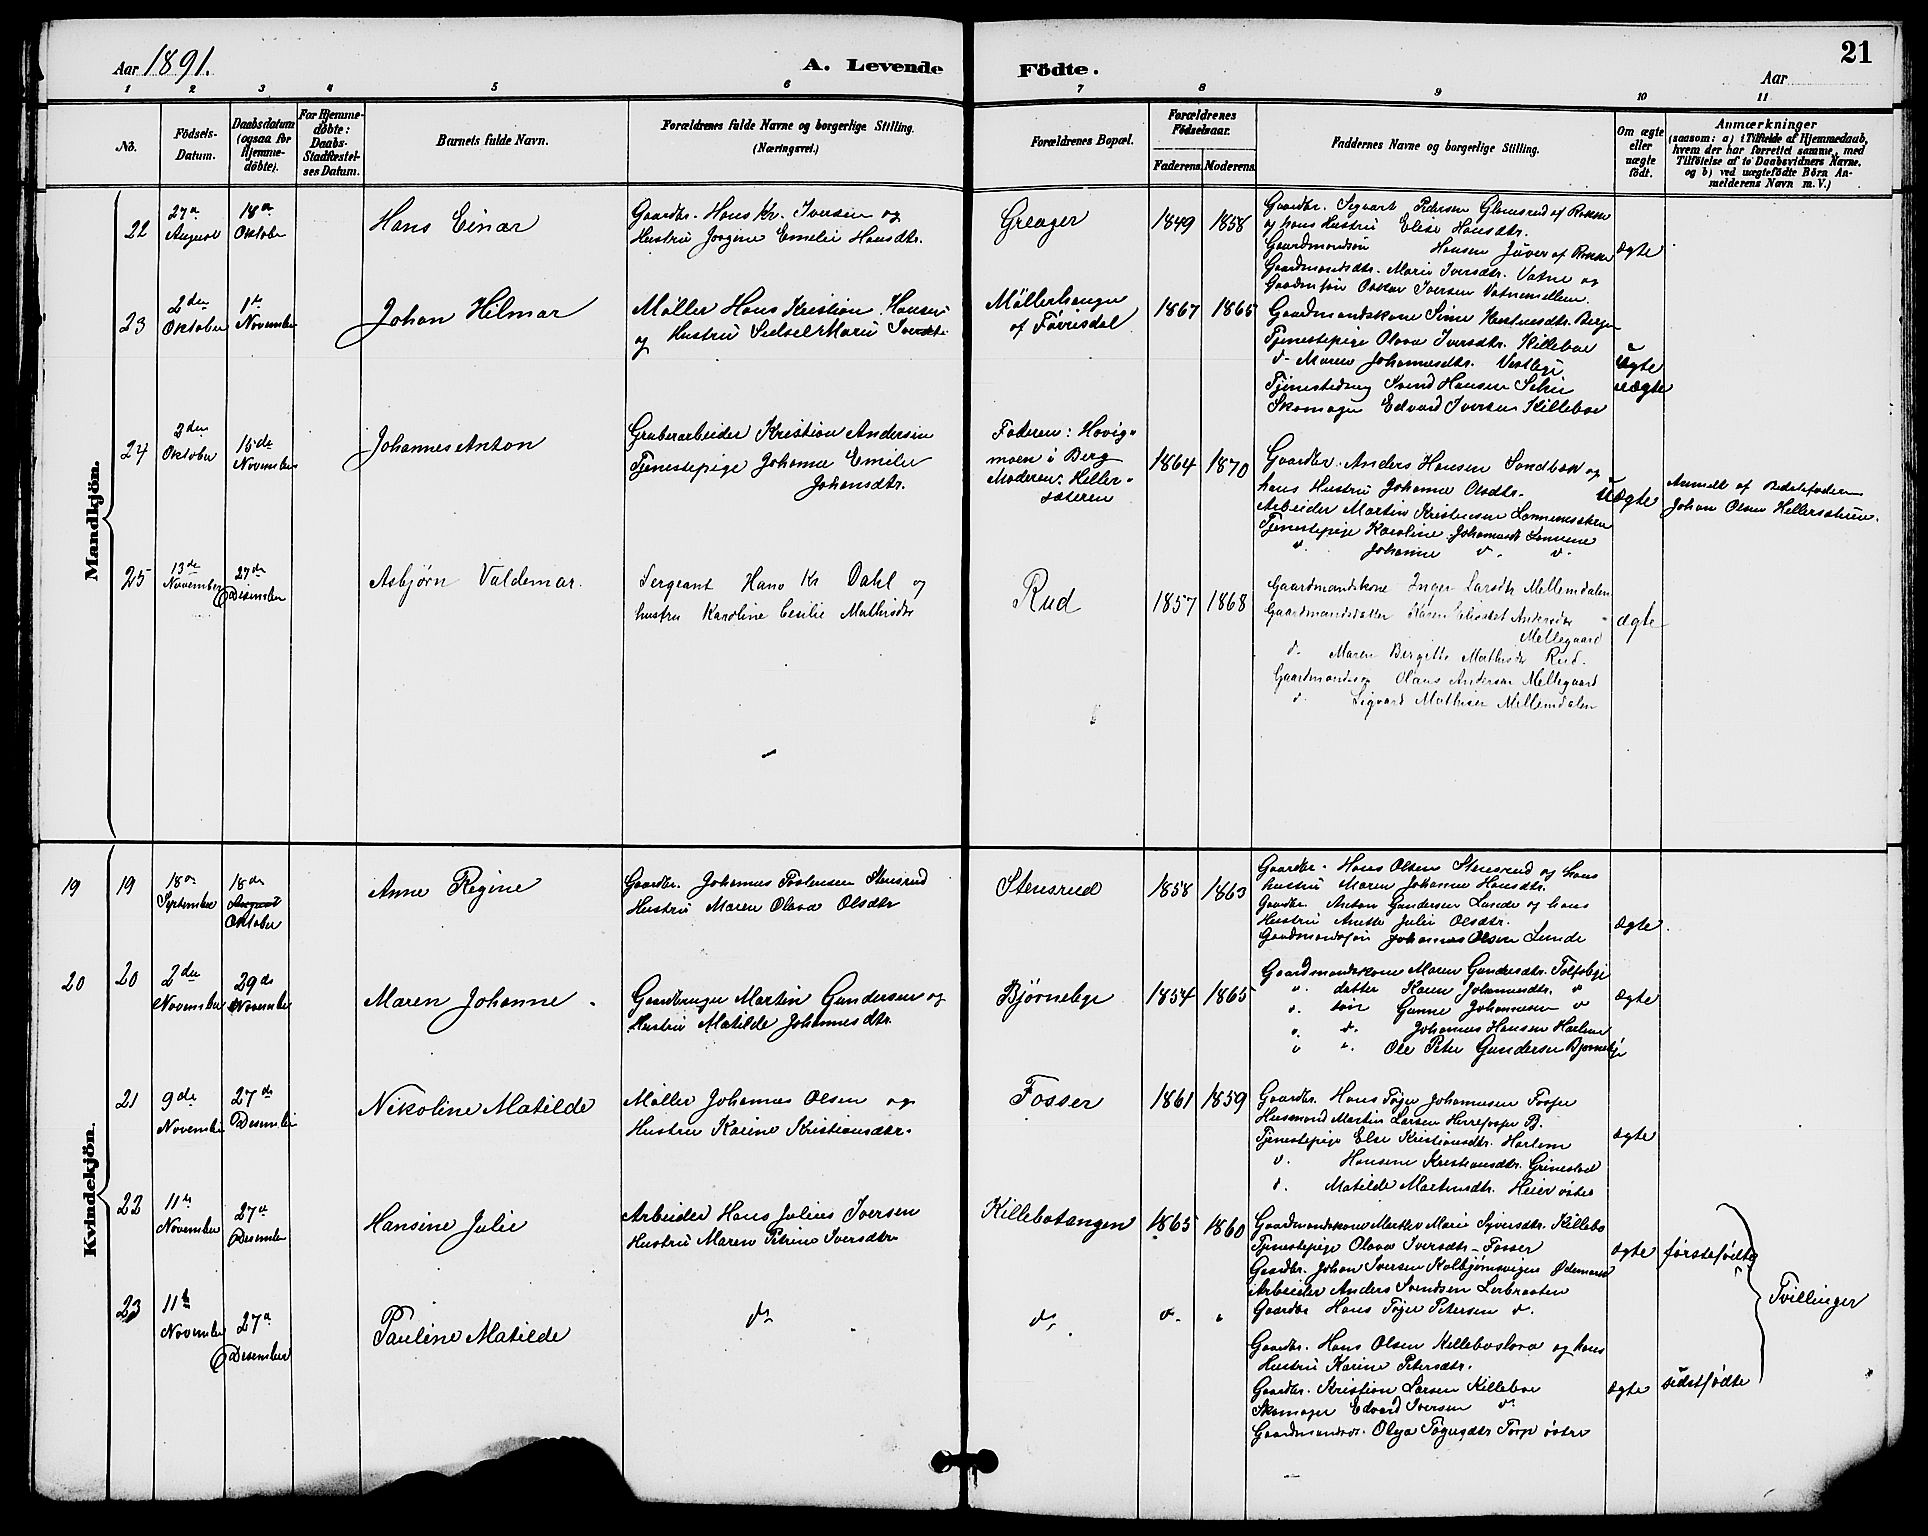 Aar 1891.
A. Levende Födte.
21
Aar
1 2 3 4 5 6 7 8 9 10 11
No.
Födsels-
Datum.
Daabsdatum
(ogsaa for
Hjemme-
döbte).
For Hjemme-
döbte:
Daabs-
Stadfæstel-
ses Datum.
Barnets fulde Navn.
Forældrenes fulde Navne og borgerlige Stilling.
(Næringsvei.)
Forældrenes Bopæl.
Forældrenes
Födselsaar.
Faderens. Moderens.
Faddernes Navne og borgerlige Stilling.
Om ægte
eller
uægte
födt.
Anmærkninger
(saasom: a) i Tilfælde af Hjemmedaab,
hvem der har forrettet samme, med
Tilföielse af to Daabsvidners Navne,
og b) ved uægtefödte Börn An-
melderens Navn m. V.)
Mandkjön.
22
27de
August
18de
Oktober
Hans Einar
Gaardbr. Hans Kr. Iversen og
Hustru Jørgine Emelie Hansdtr.
Greager
1849 1858
Gaardbr. Sigvart Pedersen Glomsrud af Rokke
og hans Hustru Elise Hansdtr.
Gaardmandssøn Hansen Juver af Rokke
Gaardmandsdtr. Marie Iversdtr. Vatne og
Gaardmssøn Oskar Iversen Vatnemellem.
ægte
23
2den
Oktober
1ste
November
Johan Hilmar
Møller Hans Kristian Hansen
og Hustru Sidsel Marie Iversdtr
Møllerhaugen
af Førrisdal
1867 1865
Gaardmandskone Sine Kristensdtr. Berger
Tjenestepige Olava Iversdtr. Killeboe
d- Maren Johannesdtr. Vestbye
Tjenestedreng Svend Hansen
Skomager Edvard Iversen Killeboe
Uægte
uægte
24
2den
Oktober
15de
November
Johannes Anton
Grubearbeider Kristian Andersen
Tjenestepige Johanne Emilie
Johansdtr.
Faderen: Hovig-
moen i Berg
Moderen: Heller-
sæteren
1864 1870
Gaardbr. Anders Hansen Sandbæk og
hans Hustru Johanne Olsdtr.
Arbeider Martin Kristensen Lannemsæteren
Tjenestepige Karoline Johannesdt Lanneme
d. Johanne d. d.
Uægte
Anmeldt af Bedstefaderen
Johan Olsen Hellersæteren.
25
13de
November
27de
Desember
Asbjørn Valdemar.
Sergeant Hans Kr Dahl og
hustru Karoline Cecilie Mathisdtr
Rud
1857 1868
Gaardmandskone Inger Larsdtr Mellemdalen
Gaardmandsdatter Karen Elisabet Andersdtr
Mellegaard
d. Maren Birgitte Mathisdtr Rud.
Gaardmandssøn Olaus Andersen Mellegaard
d. Sigvard Mathisen Mellemdalen
ægte
Kvindekjön.
19 19
18de
September
18de
August
Oktober
Anne Regine
Gaardbr. Johannes Torstensen Stensrud
Hustru Maren Olava Olsdtr
Stensrud
1858 1863
Gaardbr. Hans Olsen Stensrud og hans
hustru Maren Johanne Hansdtr.
Gaardbr. Anton Gundersen Lunde og hans
Hustru Anette Julie Olsdtr.
Gaardmandssøn Johannes Olsen Lunde
ægte.
20 20
2den
November
29de
November
Maren Johanne
Gaardbruger Martin Gundersen og
Hustru Matilde Johannesdtr.
Bjørnebye
1854 1865
Gaardmandskone Maren Gundersdtr. Tolfsbye
d. datter Karen Johannesdtr. d
d. søn Gunne Johannesen d
d. d. Johannes Hansen Harlem
d d. Ole Peter Gundersen Bjørnebye
ægte
21
9de
November
27de
Desember
Nikoline Matilde
Møller Johannes Olsen og
Hustru Karine Kristiansdtr.
Fosser
1861 1859
Gaardbr. Hans Tøger Johannesen Fosser
Husmand Martin Larsen Herrefosser B.
Tjenestepige Else Kristiansdtr. Harlem
d. Hansine Kristiansdtr. Grinestoel
d. Matilde Martinsdtr. Heier østre
ægte
22
11te
November
27de
Desember
Hansine Julie
Arbeider Hans Julius Iversen
Hustru Maren Petrine Iversdtr
Killebotangen
1865 1860
Gaardmandskone Marthe Marie Syversdtr. Killebo
Tjenestepige Olava Iversdtr - Fosser
Gaardbr. Johan Iversen Kolbjørnsvigen Ødemark
Arbeider Anders Svendsen Lerbraaten
Gaardbr Hans Tøger Petersen d.
ægte
førstefødte
Tvillinger
23
11te
November
27de
Desember
Pauline Matilde
d.
d.
d.
Gaardbr. Hans Olsen Killeboslora og hans
Hustru Karine Petersdtr.
Gaardbr. Kristian Larsen Killeboe
Skomager Edvard Iversen d.
Gaardmandsdtr. Olga Tøgersdtr Torp østre
ægte
sidstfødte